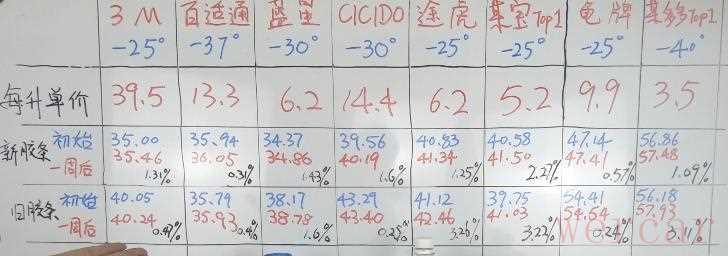 3M 百适通 蓝星 CICIDO 途虎 某宝Top1 龟牌 某多Top1
-25° -37° -30° -30° -25° -25° -25° -40°
每升单价 39.5 13.3 6.2 14.4 6.2 5.2 9.9 3.5
新胶条 初始 35.00 35.94 34.37 39.56 40.83 40.58 47.14 56.86
一周后 35.46 36.05 34.86 40.19 41.34 41.50 47.41 57.48
1.31% 0.31% 1.43% 1.6% 1.25% 2.27% 0.57% 1.09%
旧胶条 初始 40.05 35.79 38.17 43.29 41.12 39.75 54.41 56.18
一周后 40.24 35.93 38.78 43.40 42.46 41.03 54.54 57.93
0.47% 0.4% 1.6% 0.25% 3.26% 3.22% 0.24% 3.11%